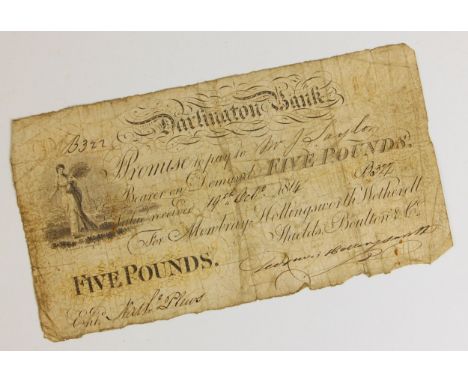 Darlington Bank
B322
I Promise to pay to Mr J. Taylor
Bearer on Demand FIVE POUNDS.
Value receiv'd 19th Octr. 1814 B322
For Mowbray Hollingsworth Wetherell
Shields Boulton & Co.
FIVE POUNDS.
Entd.